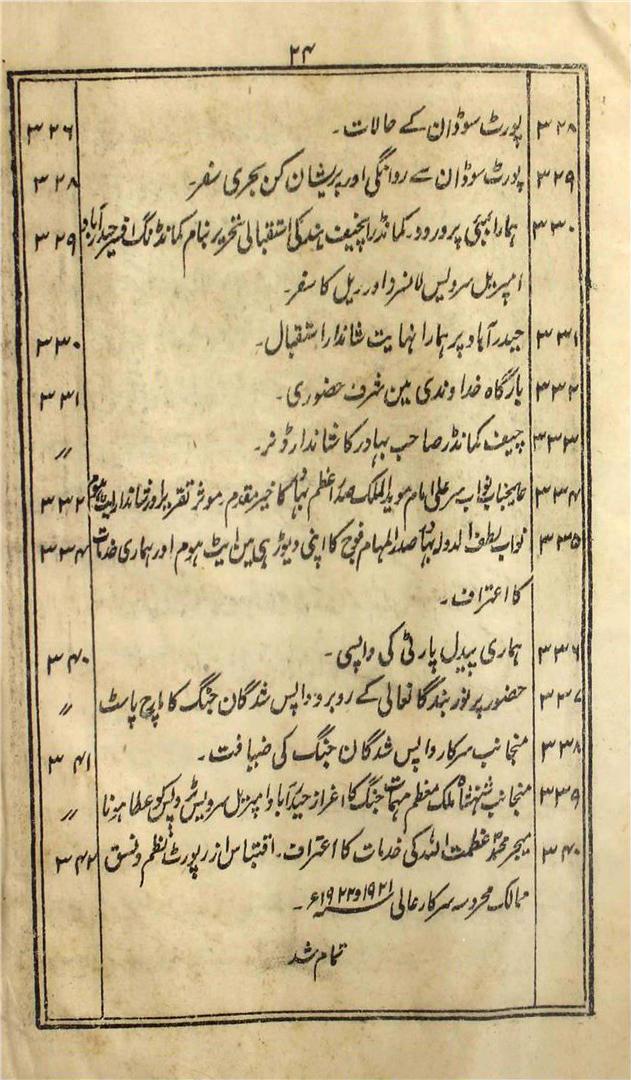 ۲۴
۳۲۸ پورٹ سوڈان کے حالات۔ ۳۲۶
۳۲۹ پورٹ سوڈان سے روانگی اور پریشان کن بحری سفر۔ ۳۲۸
۳۳۰ ہمارا بمبئی پر ورود۔ کمانڈر انچیف ہند کی استقبالی تحریر بنام کمانڈنگ افسر حیدرآباد ۳۲۹
امپریل سرویس لانسرز اور ریل کا سفر۔
۳۳۱ حیدرآباد پر ہمارا نہایت شاندار استقبال۔ ۳۳۰
۳۳۲ بارگاہ خداوندی مین شرف حضوری۔ ۳۳۱
۳۳۳ چیف کمانڈر صاحب بہادر کا شاندار ڈنر۔ 〃
۳۳۴ عالیجناب نواب سر علی امام موید الملک صدر اعظم بہادر کا خیر مقدم۔ موثر تقریر اور شاندار ایٹ ہوم ۳۳۲
۳۳۵ نواب لطف الدولہ بہادر صدر المہام فوج کا اپنی دیوڑہی مین ایٹ ہوم اور ہماری خدمات ۳۳۴
کا اعتراف۔
۳۳۶ ہماری پیدل پارٹی کی واپسی۔ ۳۴۰
۳۳۷ حضور پر نور بندگانعالی کے روبرو واپس شدگان جنگ کا مارچ پاسٹ 〃
۳۳۸ منجانب سرکار واپس شدگان جنگ کی ضیافت۔ ۳۴۱
۳۳۹ منجانب شہنشاہ ملک معظم مہمات جنگ کا اعزاز حیدرآباد امپریل سرویس ٹروپس کو عطا ہونا 〃
۳۴۰ میجر محمد عظمت اللہ کی خدمات کا اعتراف۔ اقتباس از رپورٹ نظم و نسق ۳۴۲
ممالک محروسہ سرکار عالی ۱۹۲۱ و ۱۹۲۲ء۔
تمام شد